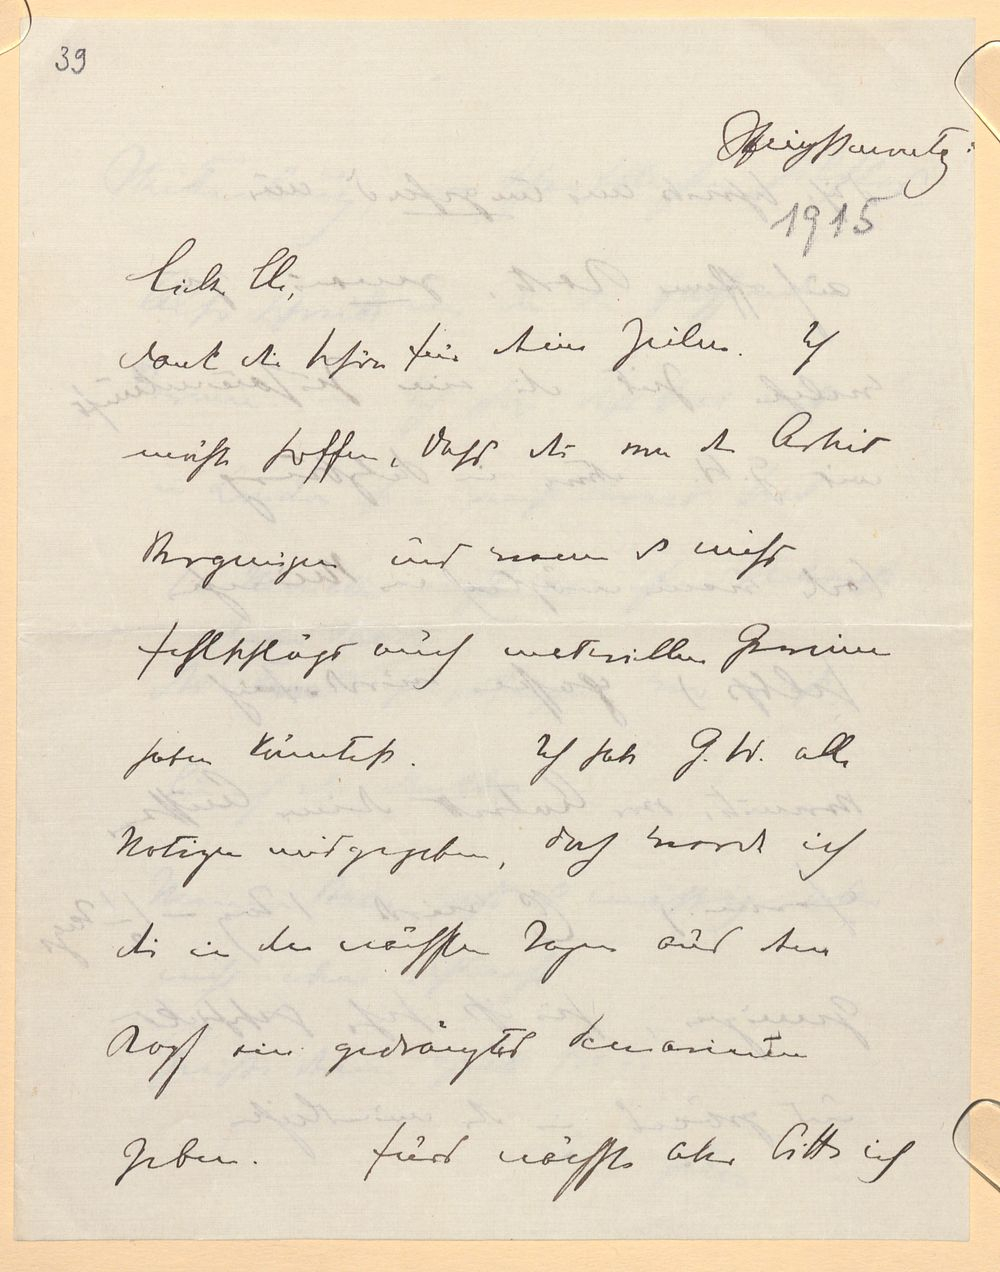 39
1915
Liebe Else,
dank dir schön für deine Zeilen. Ich
möchte hoffen, dass du von der Arbeit
Vergnügen und wenn es nicht
fehlschlägt auch materiellen Gewinn
haben könntest. Ich habe G. W. alle
Notizen mitgegeben, doch werde ich
dir in den nächsten Tagen aus dem
Kopf ein gedrängtes
geben. Fürs nächste aber bitte ich